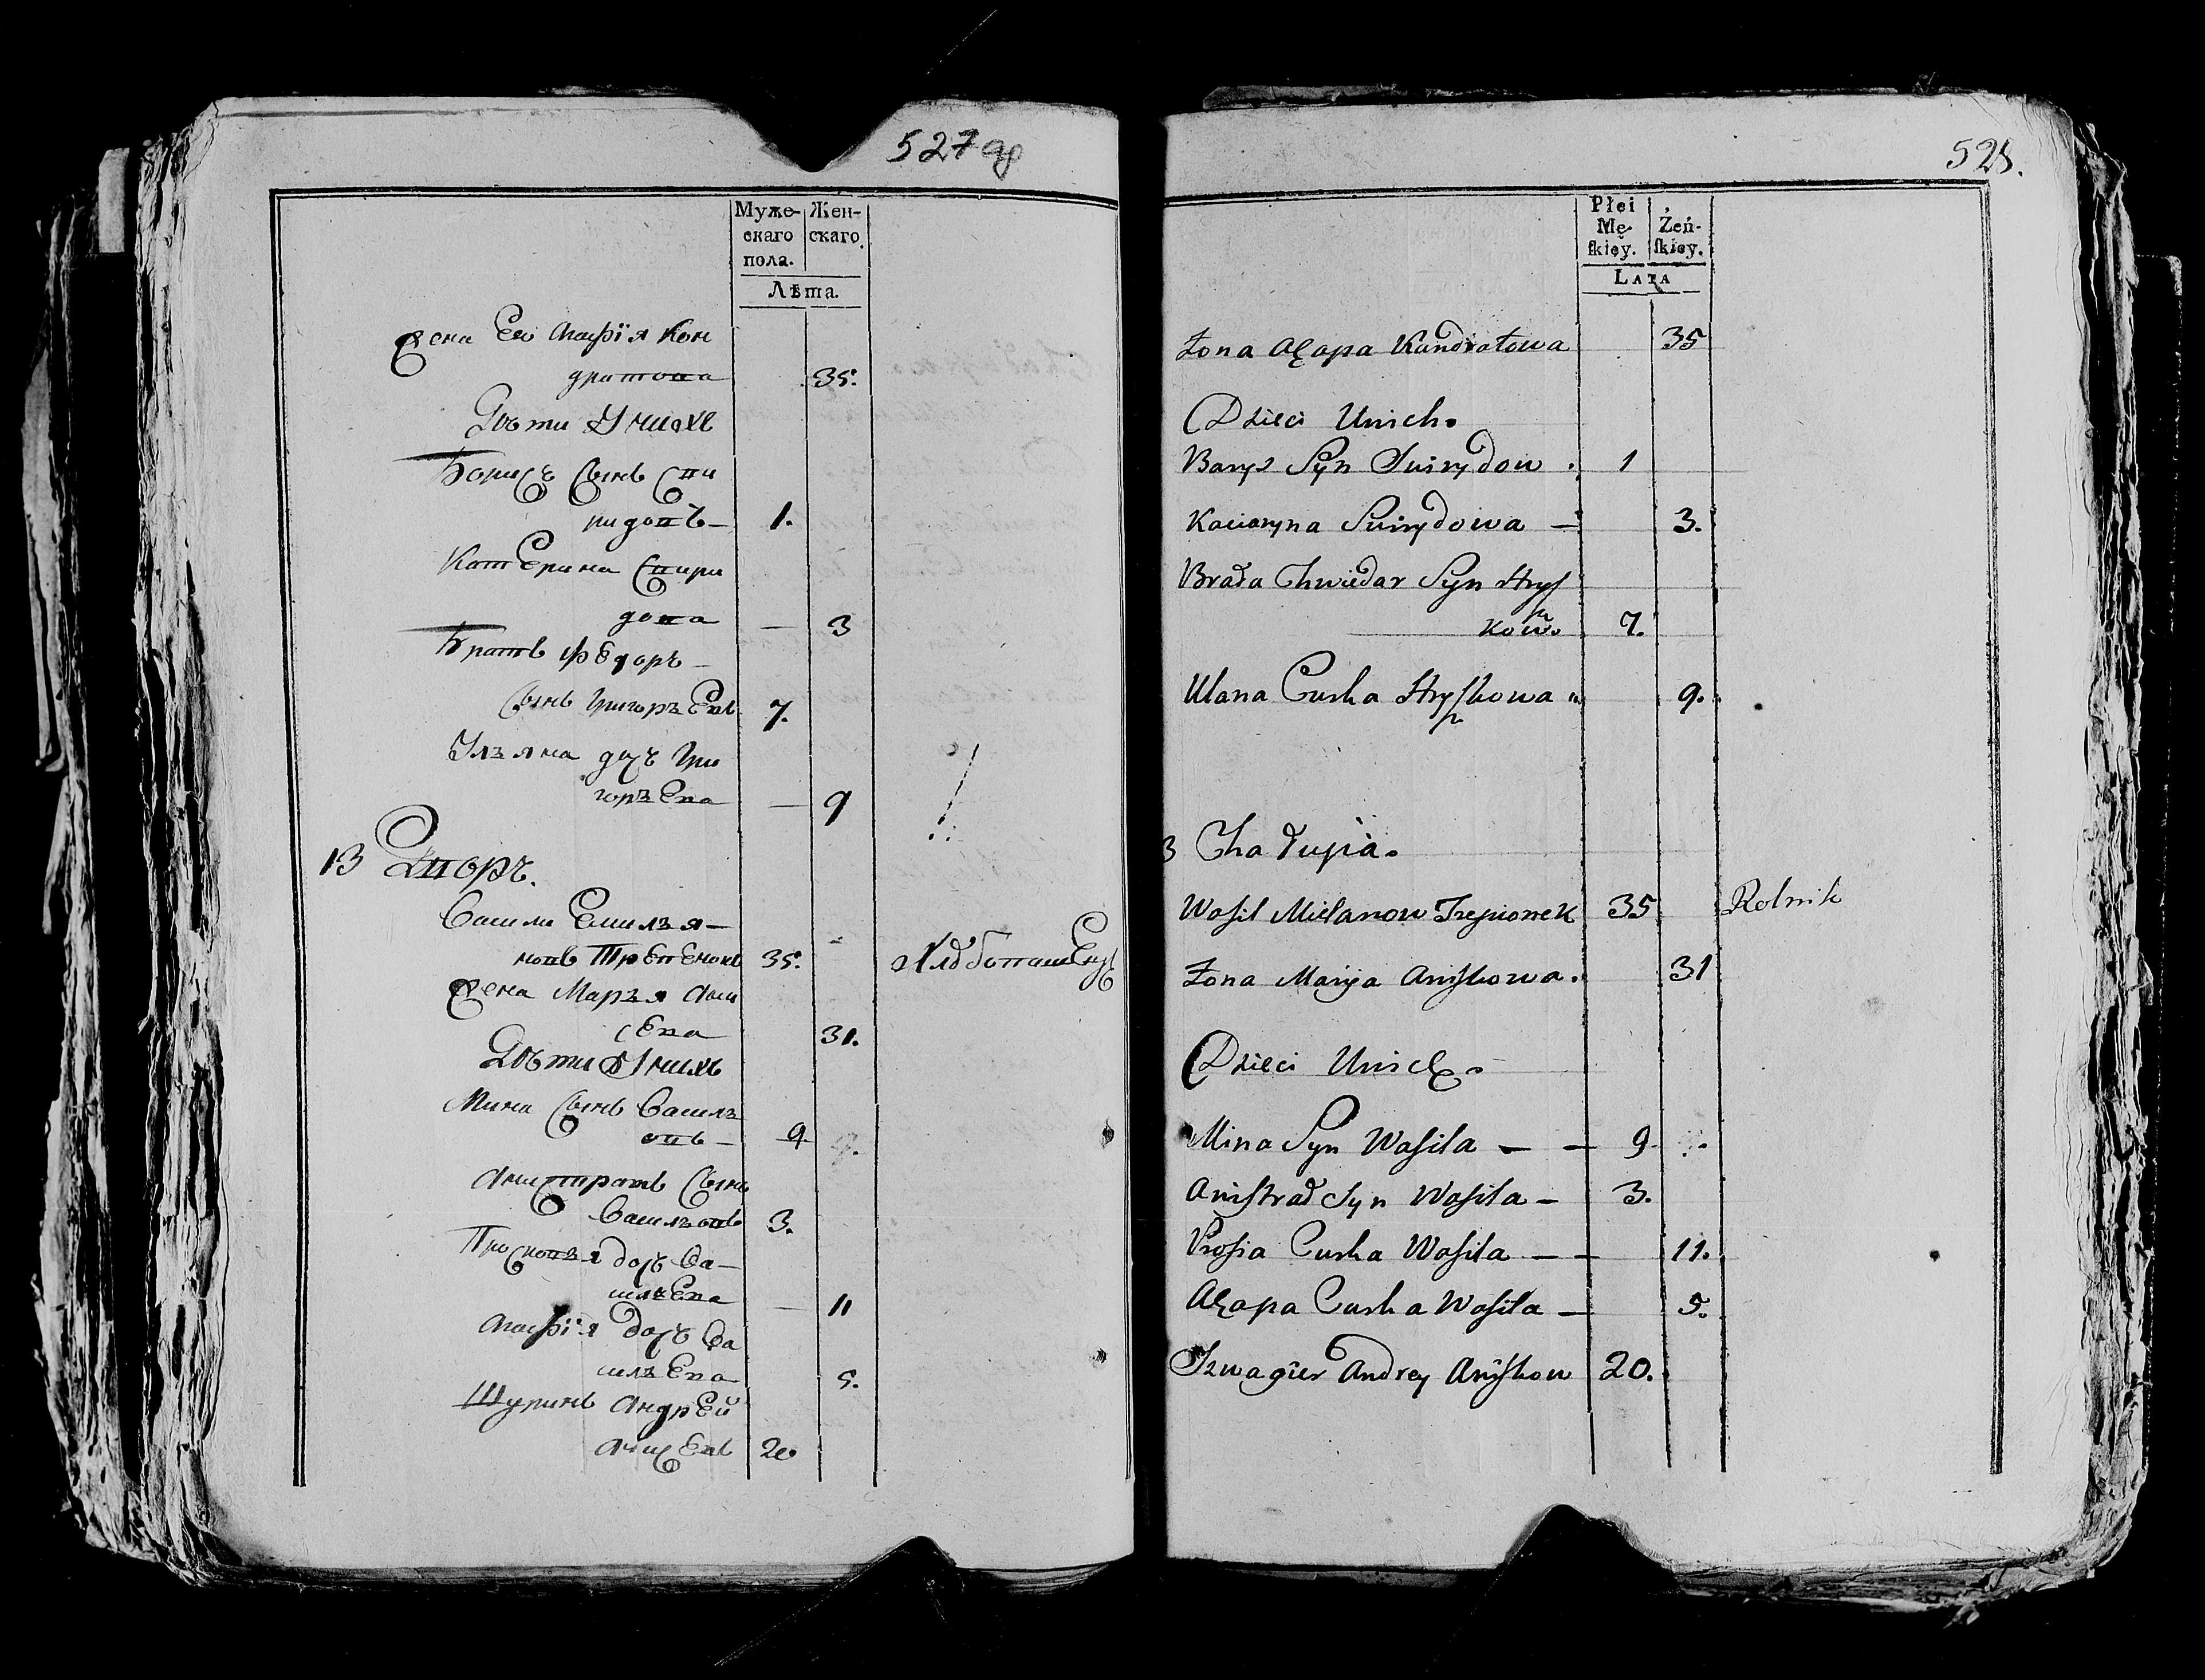 527 об
Муже-
скаго
пола.
Жен-
скаго
Лѣта.
Жена Его Агафія Кон
дратова 35.
Дѣти У нихъ
Борисъ Сынъ Спи
ридовъ — 1.
Катерина Спири
дова — 3
Братъ Федоръ —
Сынъ Григорьевъ 7.
Ульяна дочь Гри
горьева — 9
13 Дворъ.
Васили Емилья—
новъ Трепенокъ 35.
Хлѣбопашецъ
Жена Марья Ани
сева 31.
Дѣти У нихъ
Мина Сынъ Василь
евъ — 9
Анистратъ Сынъ
Васильевъ 3.
Просковья дочь Ва—
сильева — 11
Агафія дочь Ва
сильева 5.
Шуринъ Андрей
Анисевъ 20
528.
Płci
Mę-
skiey.
Żeń-
skiey.
LATA
Żona Agapa Kandratowa 35
Dzieci Unich.
Barys Syn Swirydow . 1
Kaciaryna Swirydowa — 3.
Brata Chwiedar Syn Hrysz
kow. 7.
Ulana Curka Hryszkowa 9.
3 Chałupa.
Wasil Mielanow Trepionek 35 Rolnik
Żona Maryja Aniskowa. 31
Dzieci Unich.
Mina Syn Wasila — — 9
Anistrat Syn Wasila — 3.
Prosia Curka Wasila — — 11.
Agapa Curka Wasila — 5.
Szwagier Andrey Aniskow 20.